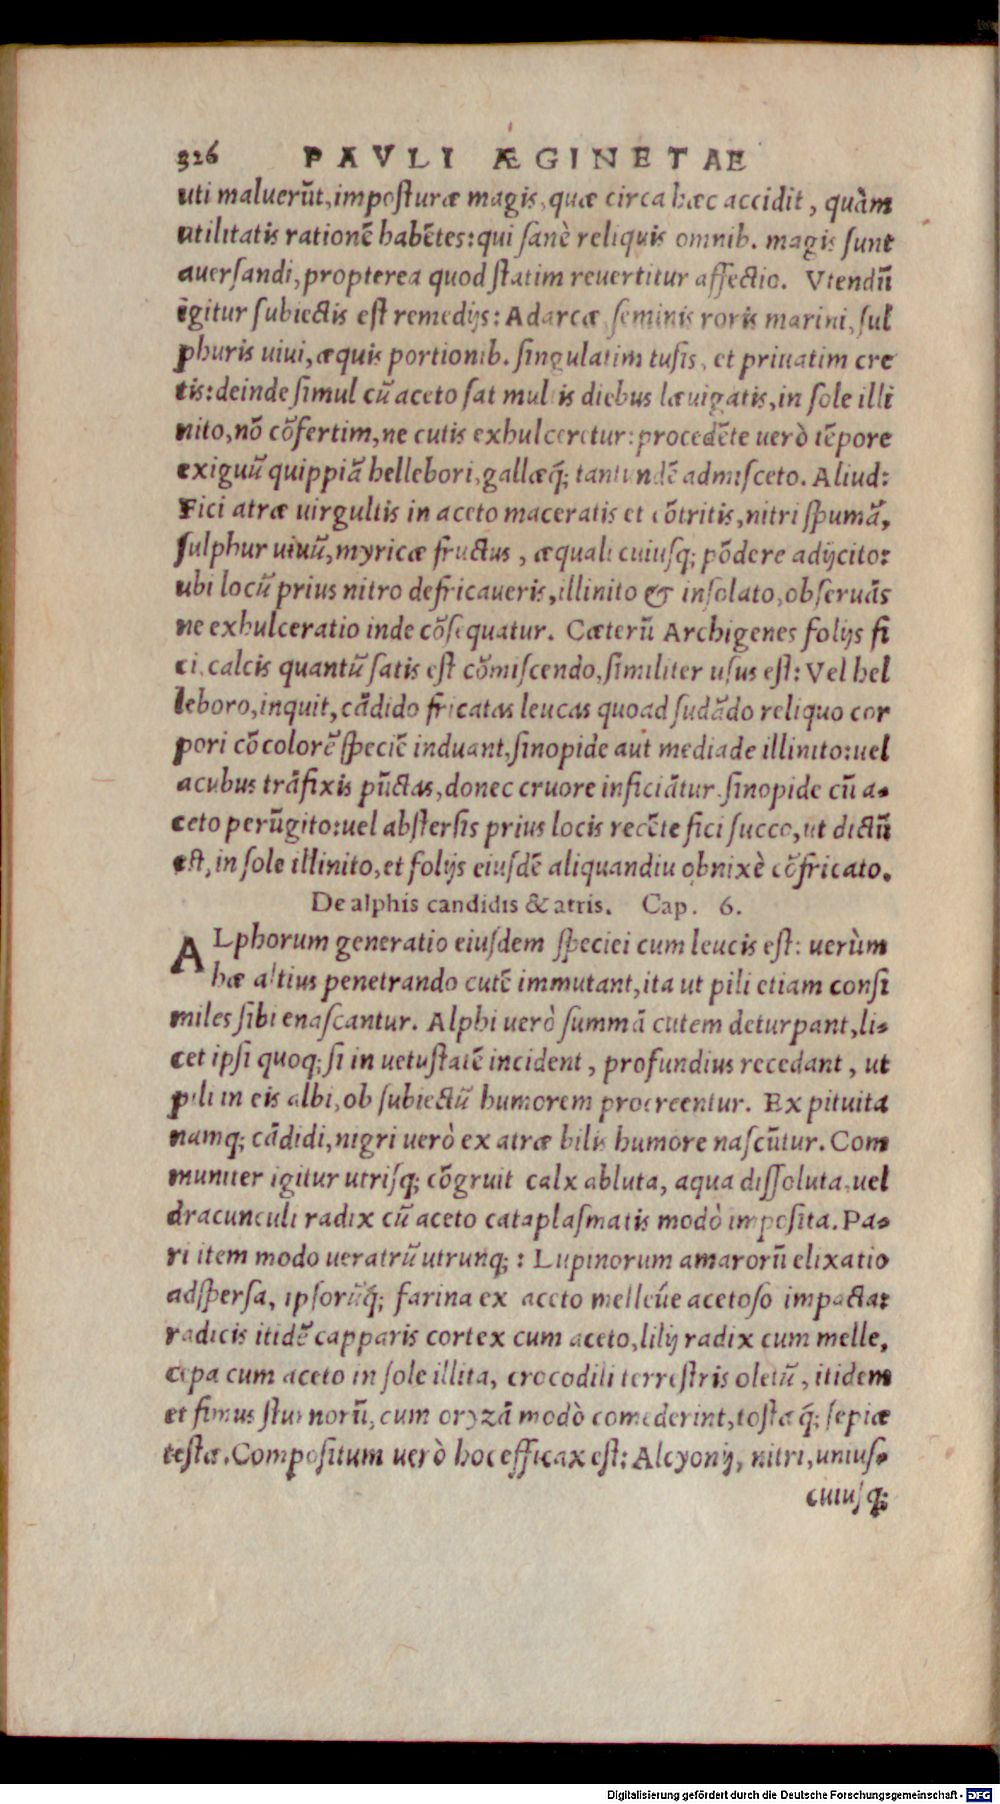 326 PAVLI ÆGINETAE
uti maluerūt, imposturæ magis, quæ circa hæc accidit, quàm
utilitatis rationē habētes: qui sanè reliquis omnib. magis sunt
auersandi, propterea quod statim reuertitur affectio. Vtendū
igitur subiectis est remedijs: Adarcæ, seminis roris marini, sul
phuris uiui, æquis portionib. singulatim tusis, et priuatim cre
tis: deinde simul cū aceto sat multis diebus læuigatis, in sole illi
nito, nō cōfertim, ne cutis exhulceretur: procedēte uerò tēpore
exiguū quippiā hellebori, gallæq́; tantundē admisceto. Aliud:
Fici atræ uirgultis in aceto maceratis et cōtritis, nitri spumā,
sulphur uiuū, myricæ fructus, æquali cuiusq; pōdere adijcito:
ubi locū prius nitro defricaueris, illinito & insolato, obseruās
ne exhulceratio inde cōsequatur. Cæterū Archigenes folijs fi
ci, calcis quantū satis est cōmiscendo, similiter usus est: Vel hel
leboro, inquit, cādido fricatas leucas quoad sudādo reliquo cor
pori cōcolorē speciē induant, sinopide aut mediade illinito: uel
acubus trāfixis pūctas, donec cruore inficiātur. sinopide cū a-
ceto perūgito: uel abstersis prius locis recēte fici succo, ut dictū
est, in sole illinito, et folijs eiusdē aliquandiu obnixè cōfricato.
De alphis candidis & atris. Cap. 6.
ALphorum generatio eiusdem speciei cum leucis est: uerùm
hæ altius penetrando cutē immutant, ita ut pili etiam consi
miles sibi enascantur. Alphi uerò summā cutem deturpant, li-
cet ipsi quoq; si in uetustatē incident, profundius recedant, ut
pili in eis albi, ob subiectū humorem procreentur. Ex pituita
namq; cādidi, nigri uerò ex atræ bilis humore nascūtur. Com
muniter igitur utrisq; cōgruit calx abluta, aqua dissoluta, uel
dracunculi radix cū aceto cataplasmatis modò imposita. Pa-
ri item modo ueratrū utrunq; : Lupinorum amarorū elixatio
adspersa, ipsorūq́; farina ex aceto melleúe acetoso impacta:
radicis itidē capparis cortex cum aceto, lilij radix cum melle,
cepa cum aceto in sole illita, crocodili terrestris oletū, itidem
et fimus sturnorū, cum oryzā modò comederint, tostæq́; sepiæ
testæ. Compositum uerò hoc efficax est: Alcyonij, nitri, unius-
cuiusq;
Digitalisierung gefördert durch die Deutsche Forschungsgemeinschaft - DFG